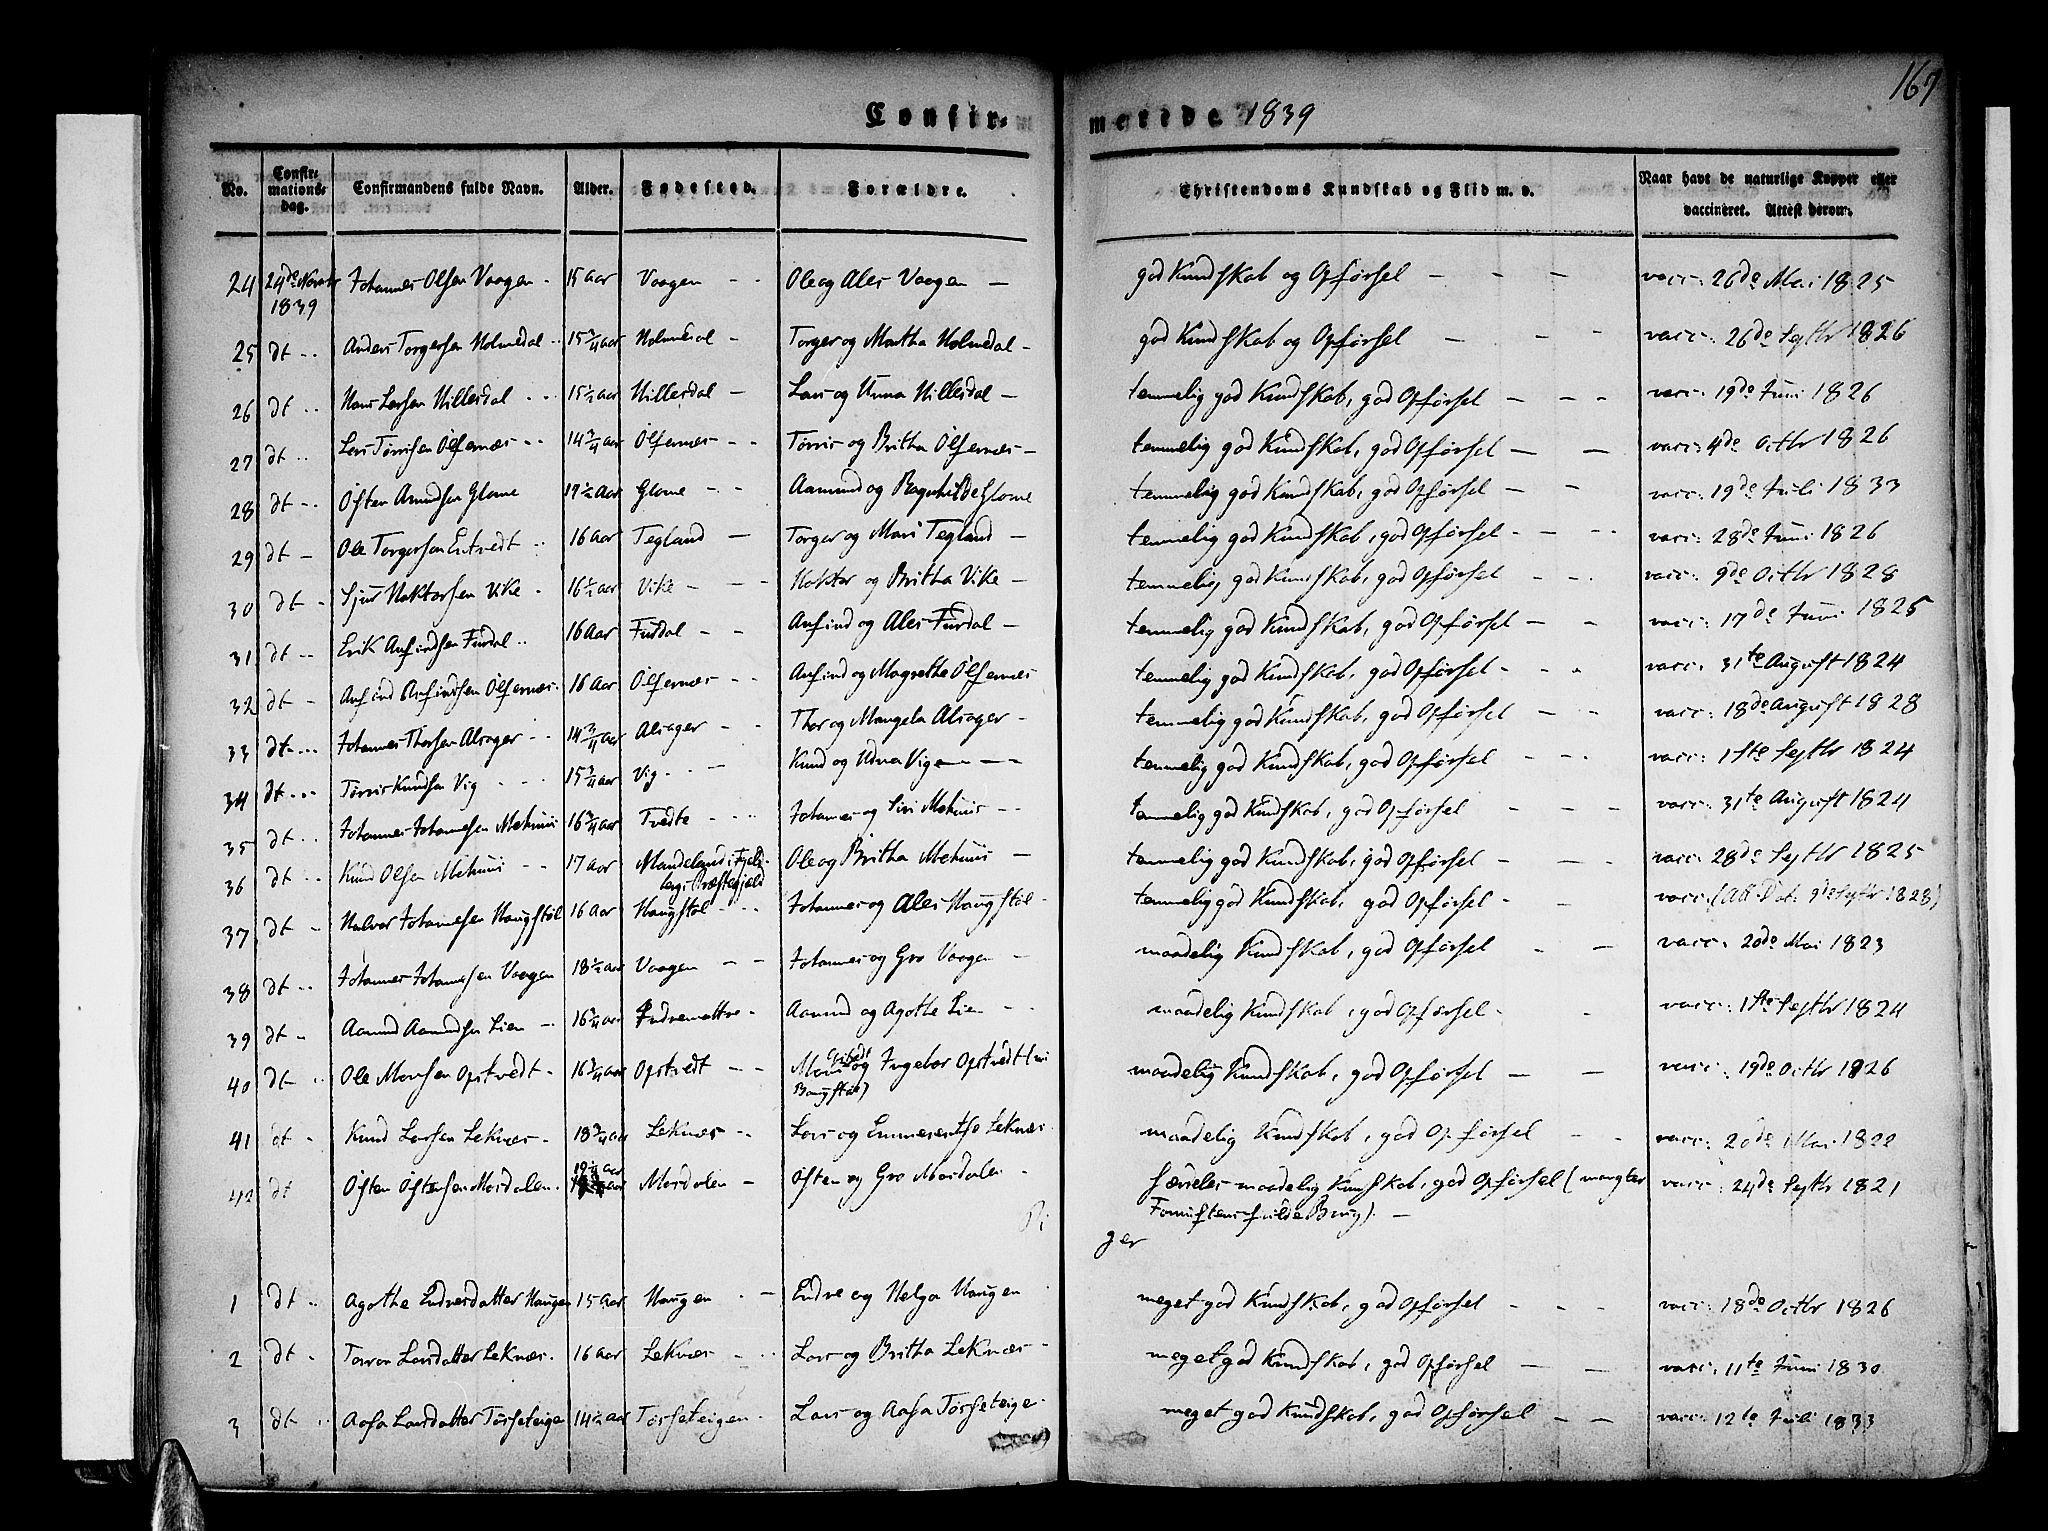 167
Confirmerede 1839
No. Confirmations dag. Confirmandens fulde Navn. Alder. Fødested. Forældre. Christendoms Kundskab og Flid m. v. Naar havt de naturlige Kopper eller vaccineret. Attest derom.
24 24de Novbr 1839 Johannes Olsen Vaagen 15 Aar Vaagen Ole og Ales Vaagen god Kundskab og Opførsel vacc: 26de Mai 1825
25 dt Anders Torgersen Holmedal 15 3/4 Aar Holmedal Torger og Martha Holmedal god Kundskab og Opførsel vacc: 26de Septbr 1826
26 dt Hans Larsen Hillesdal 15 1/2 Aar Hillesdal Lars og Unna Hillesdal temmelig god Kundskab, god Opførsel vacc: 19de Juni 1826
27 dt Lars Tørrisen Ølfernæs 14 3/4 Aar Ølfernæs Tørris og Britha Ølfernæs temmelig god Kundskab, god Opførsel vacc: 4de Octbr 1826
28 dt Østen Amundsen Glome 19 1/2 Aar Glome Aamund og Ragnhilde Glome temmelig god Kundskab, god Opførsel vacc: 19de Juli 1833
29 dt Ole Torgersen Entvedt 16 Aar Tegland Torger og Mari Tegland temmelig god Kundskab, god Opførsel vacc: 28de Juni 1826
30 dt Sjur Haktorsen Vike 16 1/2 Aar Vike Haktor og Britha Vike temmelig god Kundskab, god Opførsel vacc: 9de Octbr 1828
31 dt Erik Anfindsen Furdal 16 Aar Furdal Anfind og Ales Furdal temmelig god Kundskab, god Opførsel vacc: 17de Juni 1825
32 dt Anfind Anfindsen Ølfernæs 16 Aar Ølfernæs Anfind og Magrethe Ølfernæs temmelig god Kundskab, god Opførsel vacc: 31te August 1824
33 dt Johannes Thorsen Alsager 14 3/4 Aar Alsager Thor og Mangela Alsager temmelig god Kundskab, god Opførsel vacc: 18de August 1828
34 dt Tørris Knudsen Vig 15 3/4 Aar Vig Knud og Udna Vig temmelig god Kundskab, god Opførsel vacc: 1ste Septbr 1824
35 dt Johannes Johannesen Mehuus 16 3/4 Aar Tvedte Johannes og Siri Mehuus temmelig god Kundskab, god Opførsel vacc: 31te August 1824
36 dt Knud Olsen Mehuus 17 Aar Mandeland i Fjeldbergs Præstegjeld Ole og Britha Mehuus temmelig god Kundskab, god Opførsel vacc: 28de Septbr 1825
37 dt Halvor Johannesen Haugstøl 16 Aar Haugstøl Johannes og Ales Haugstøl temmelig god Kundskab, god Opførsel vacc: (Att: Dat: 9de Septbr 1828)
38 dt Johannes Johannesen Vaagen 18 1/2 Aar Vaagen Johannes og Gro Vaagen maadelig Kundskab, god Opførsel vacc: 20de Mai 1823
39 dt Aamund Aamundsen Lien 16 3/4 Aar Indremattre Aamund og Agathe Lien maadelig Kundskab, god Opførsel vacc: 1ste Septbr 1824
40 dt Ole Monsen Opstvedt 16 3/4 Aar Opstvedt Mons og Ingebor Opstvedt maadelig Kundskab, god Opførsel vacc: 19de Octbr 1826
41 dt Knud Larsen Leknæs 18 3/4 Aar Leknæs Lars og Emmerentse Leknæs maadelig Kundskab, god Opførsel vacc: 20de Mai 1822
42 dt Østen Østensen Mosdalen 19 1/4 Aar Mosdalen Østen og Gro Mosdalen særdeles maadelig Kundskab, god Opførsel (mangler Fornuftens fulde Brug). vacc: 24de Septbr 1821
Piger
1 dt Agathe Endresdatter Haugen 15 Aar Haugen Endre og Helga Haugen meget god Kundskab, god Opførsel vacc: 18de Octbr 1826
2 dt Torron Larsdatter Leknæs 16 Aar Leknæs Lars og Britha Leknæs meget god Kundskab, god Opførsel vacc: 11te Juni 1830
3 dt Aasa Larsdatter Torseteigen 14 1/2 Aar Torseteigen Lars og Aasa Torseteige meget god Kundskab, god Opførsel vacc: 12te Juli 1833